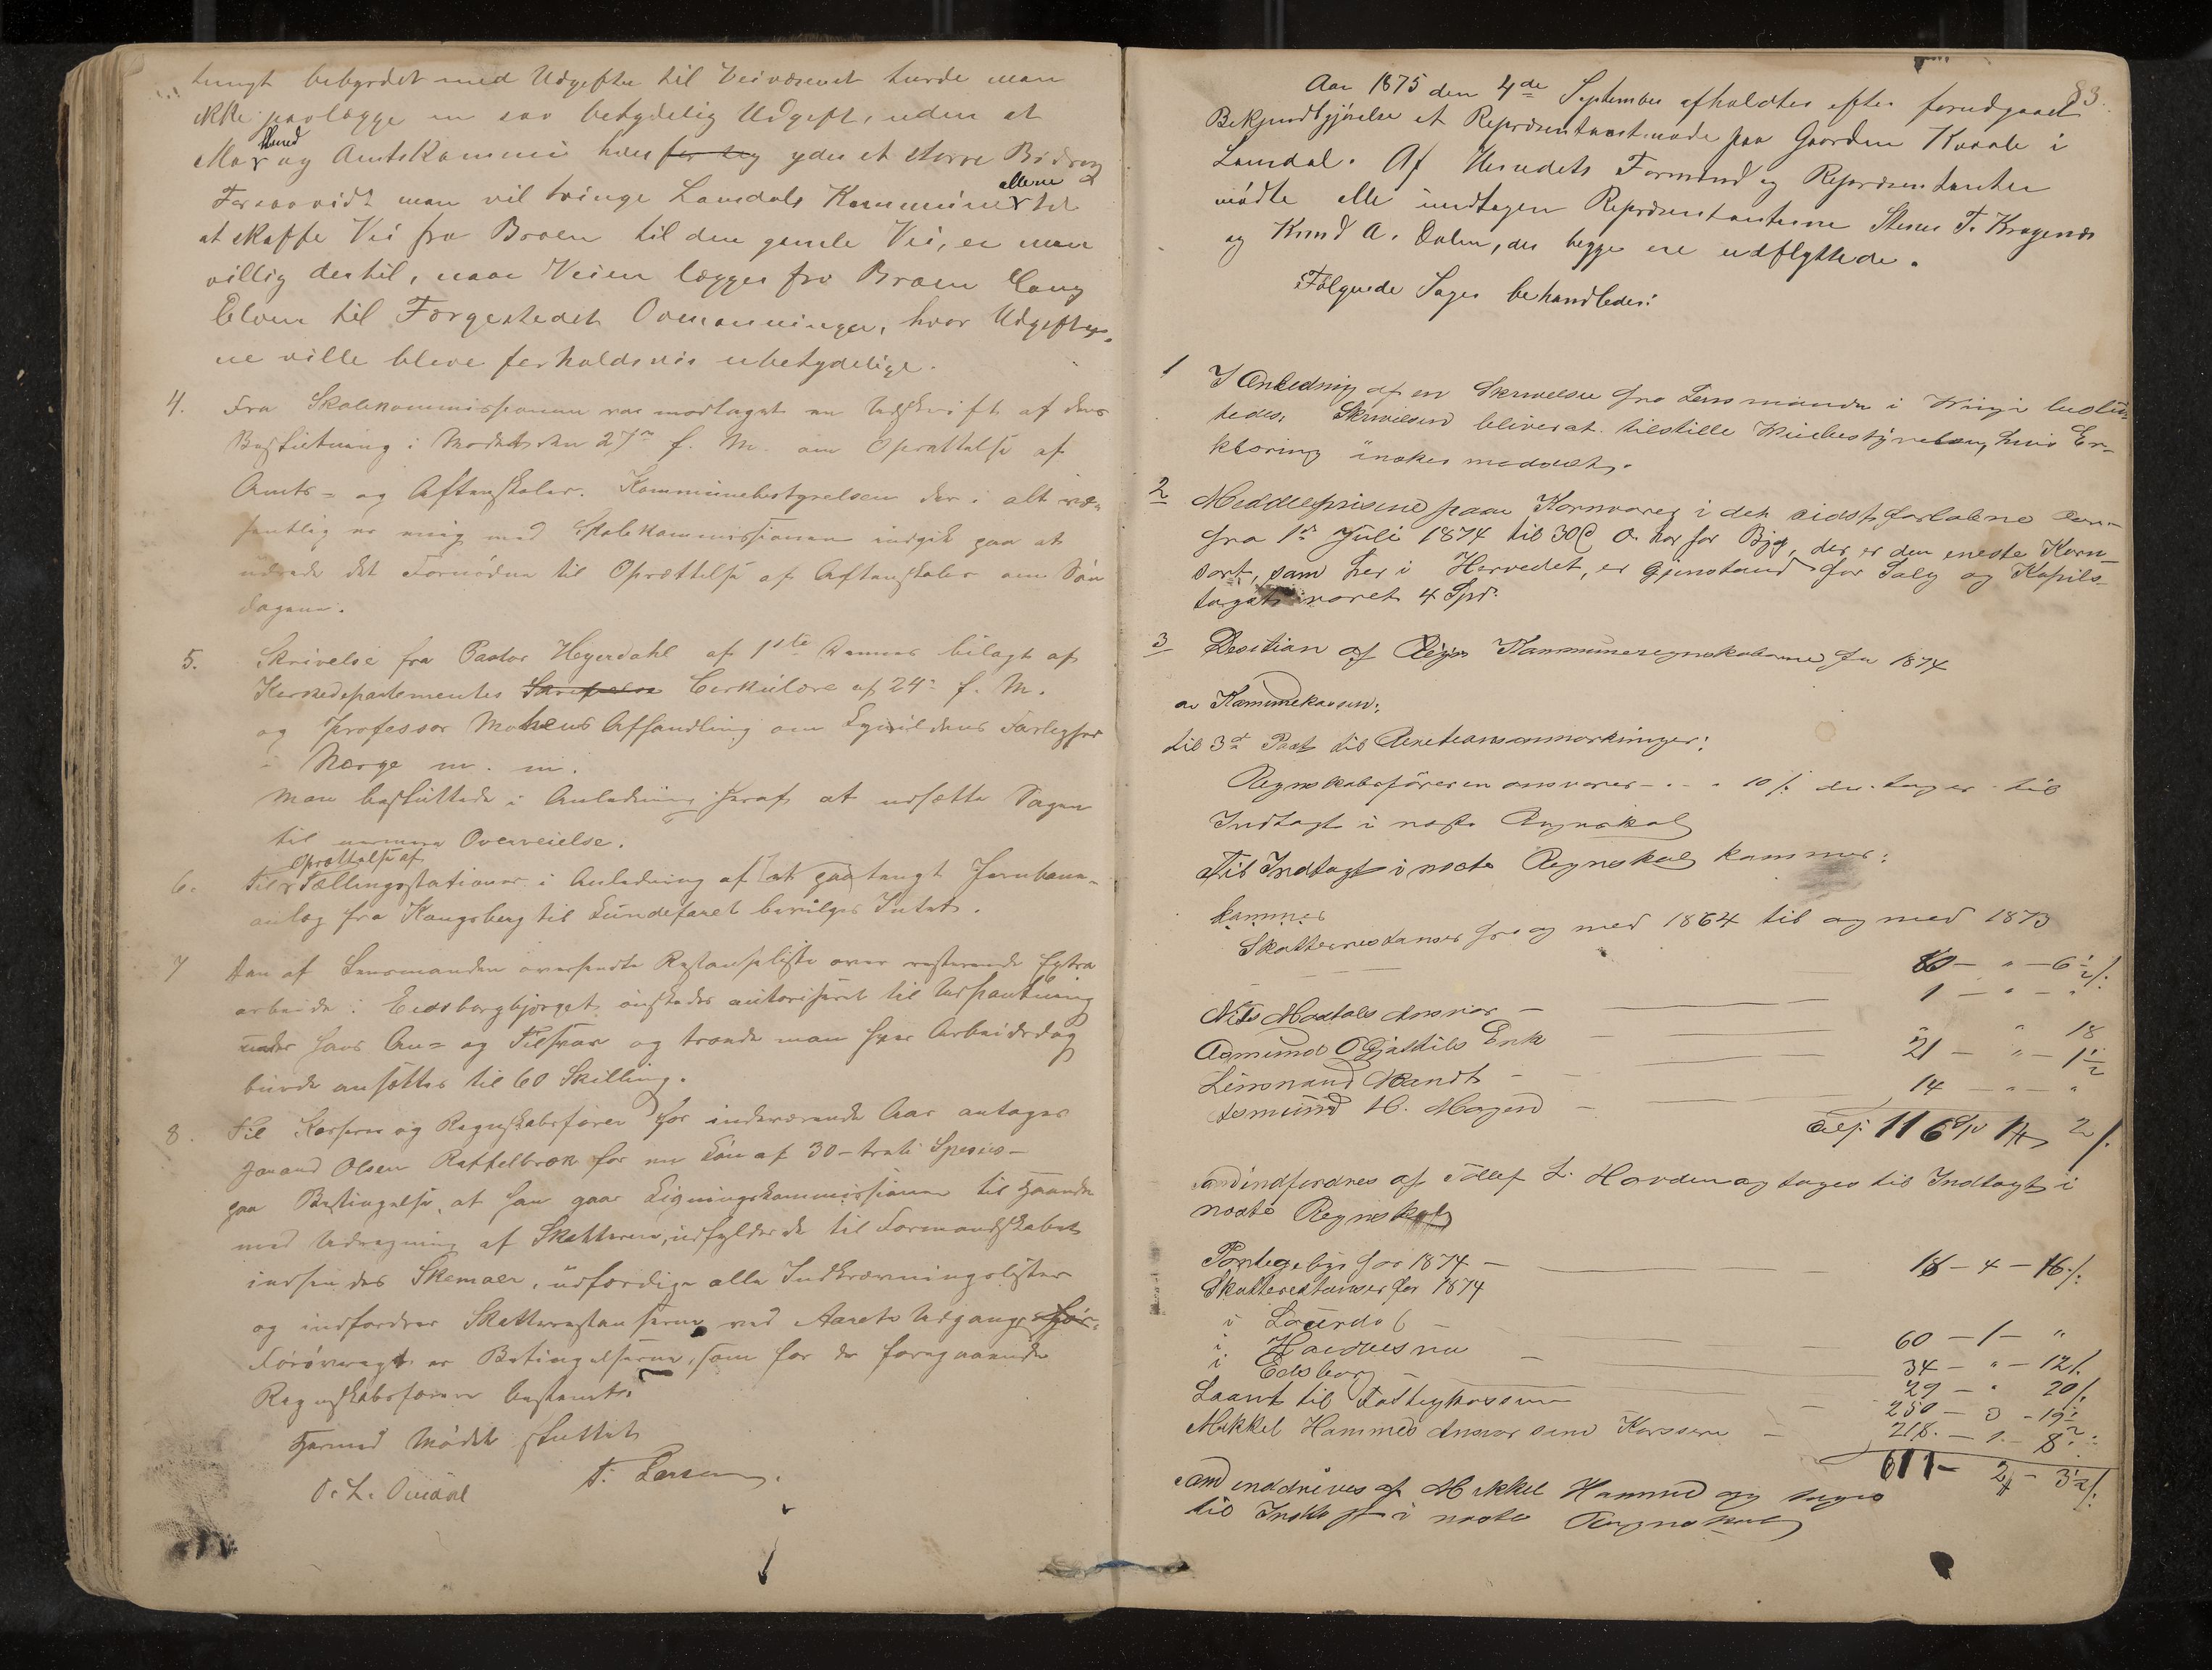 tungt bebyrdet med Udgifter til Veivæsenet turde man
ikke paalægge en saa betydelig Udgift, uden at
Mo Hered og Amtskommune hver for sig yder et større Bidrag
Forsaavidt man vil tvinge Laurdals Kommune allene til
at skaffe Vei fra Broen til den gamle Vei, er man
villig dertil, naar Veien lægges fra Broen lang
Elven til Færgestedet Ovenanningen, hvor Udgifter-
ne ville bleve forholdsvis ubetydelige.
4. Fra Skolekommissionen var modtaget en Udskrift af dens
Beslutning i Mødet den 27de f. M. om Oprettelse af
Amts- og Aftenskoler. Kommunebestyrelsen der i alt væ-
sentlig er enig med Skolekommissionen indgik paa at
udrede det Fornødne til Oprettelse af Aftenskoler om Søn
dagene.
5. Skrivelse fra Pastor Heyerdahl af 1ste dennes bilagt af
Kirkedepartementes Skrivelse Cirkulære af 24de f. M.
og Professor Mohns Afhandling om Lynildens Farlighed
i Norge m. m.
Man besluttede i Anledning heraf at udsætte Sagen
til nærmere Overveielse.
6. Til Oprettelse af Tællingsstationer i Anledning af at paatænkt Jernbane-
anlæg fra Kongsberg til Lundefaret bevilges Intet.
7 Den af Lensmanden oversendte Restanseliste over resterende Extra
arbeide i Eidsborgbjerget ønskedes autoriseret til Udpantning
under hans An- og Tilsvar og troede man hver Arbeidsdag
burde ansættes til 60 Skilling.
8. Til Kasserer og Regnskabsfører for indeværende Aar antoges
Olsen Raffelbræk for en Løn af 30 - treti Species -
paa Betingelse, at han gaar Ligningskommissionen til Haande
med Udregning af Skatterne, udfylder de til Formandskabet
indsendes Skemaer, udfærdige alle Indkrævningslister
og indfordrer Skatterestanserne ved Aarets Udgang. For-
Forøvrigt er Betingelserne, som for de foregaaende
Regnskabsførere bestemt.
Hermed Mødet sluttet
O. L. Ovedal T. Larsen.
83.
Aar 1875 den 4de September afholdtes efter forudgaaet
Bekjendtgjørelse et Repræsentantmøde paa Gaarden Kvaale i
Laurdal. Af Herredets Formænd og Repræsentanter
mødte alle undtagen Repræsentanterne Stener T. Kragenæs
og Knud A. Dalen, der begge ere udflyttede.
Følgende Sager behandledes:
1 I Anledning af en Skrivelse fra Lensmanden i Vinje beslut-
tedes, Skrivelsen bliver at tilstille Veibestyrelsen, hvis Er-
klæring ønskes meddelt.
2 Middelprisene paa Kornvarer i det sidst forløbne Aar
fra 1ste Juli 1874 til 30te d. A. har for Byg, der er den eneste Korn-
sort, som her i Herredet, er Gjenstand for Salg og Kapits-
taxt været 4 Spd.
3 Desition af Regn Kommuneregnskaberne for 1874
a. Kommunekassen:
til 3de Post til Revisionsanmærkninger:
Regnskabsføreren ansvarer - . . . 10 ß der tages til
Indtægt i næste Regnskab
Til Indtægt i næste Regnskab kommer:
kommer
Skatterestanser fra og med 1864 til og med 1873
80 - " - 6½ ß
Nils Moxtals Ansvar - 1 - " - "
Aamund O Gjattils Enk " " 18
Lensmand Bandt - 21 - " - 1½
Aamund H. Mogen - 14 - " - "
Tils. 116 Sp 1 2 ß
som indfordres af Tollef L. Harden og tages til Indtægt i
næste Regnskab
Portegebyr for 1874 - 18 - 4 - 16 ß
Skatterestanser for 1874
i Laurdal - 60 - 1 - "
i Høidalsmo - 34 - " - 12 ß
i Edsborg 29 - " 20 ß
Laant til Fattigkassen - 250 - 3 - 19
Mikkel Hammeds Ansvar som Kasserer - 218. - 1. - 8
611 - 2 - 3½ ß
som inddrives af Mikkel Hammed og tages
til Indtægt i næste Regnskab